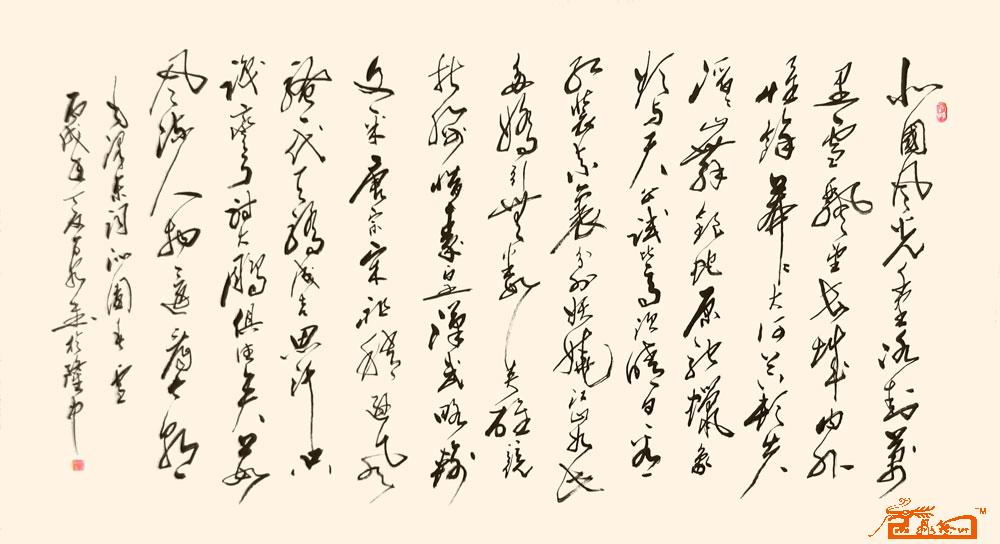 北國风光千里冰封萬
里雪飄望长城内外
惟餘莽々大河上下顿失
滔々山舞银蛇原驰蠟象
欲与天公试比高须晴日看
红装素裹分外妖娆江山如此
多娇引无数英雄竞
折腰惜秦皇漢武略输
文采唐宗宋祖稍逊风
骚一代天骄成吉思汗只
识彎弓射大雕俱往矣数
风流人物还看今朝
毛泽东词沁园春雪
丙戌年